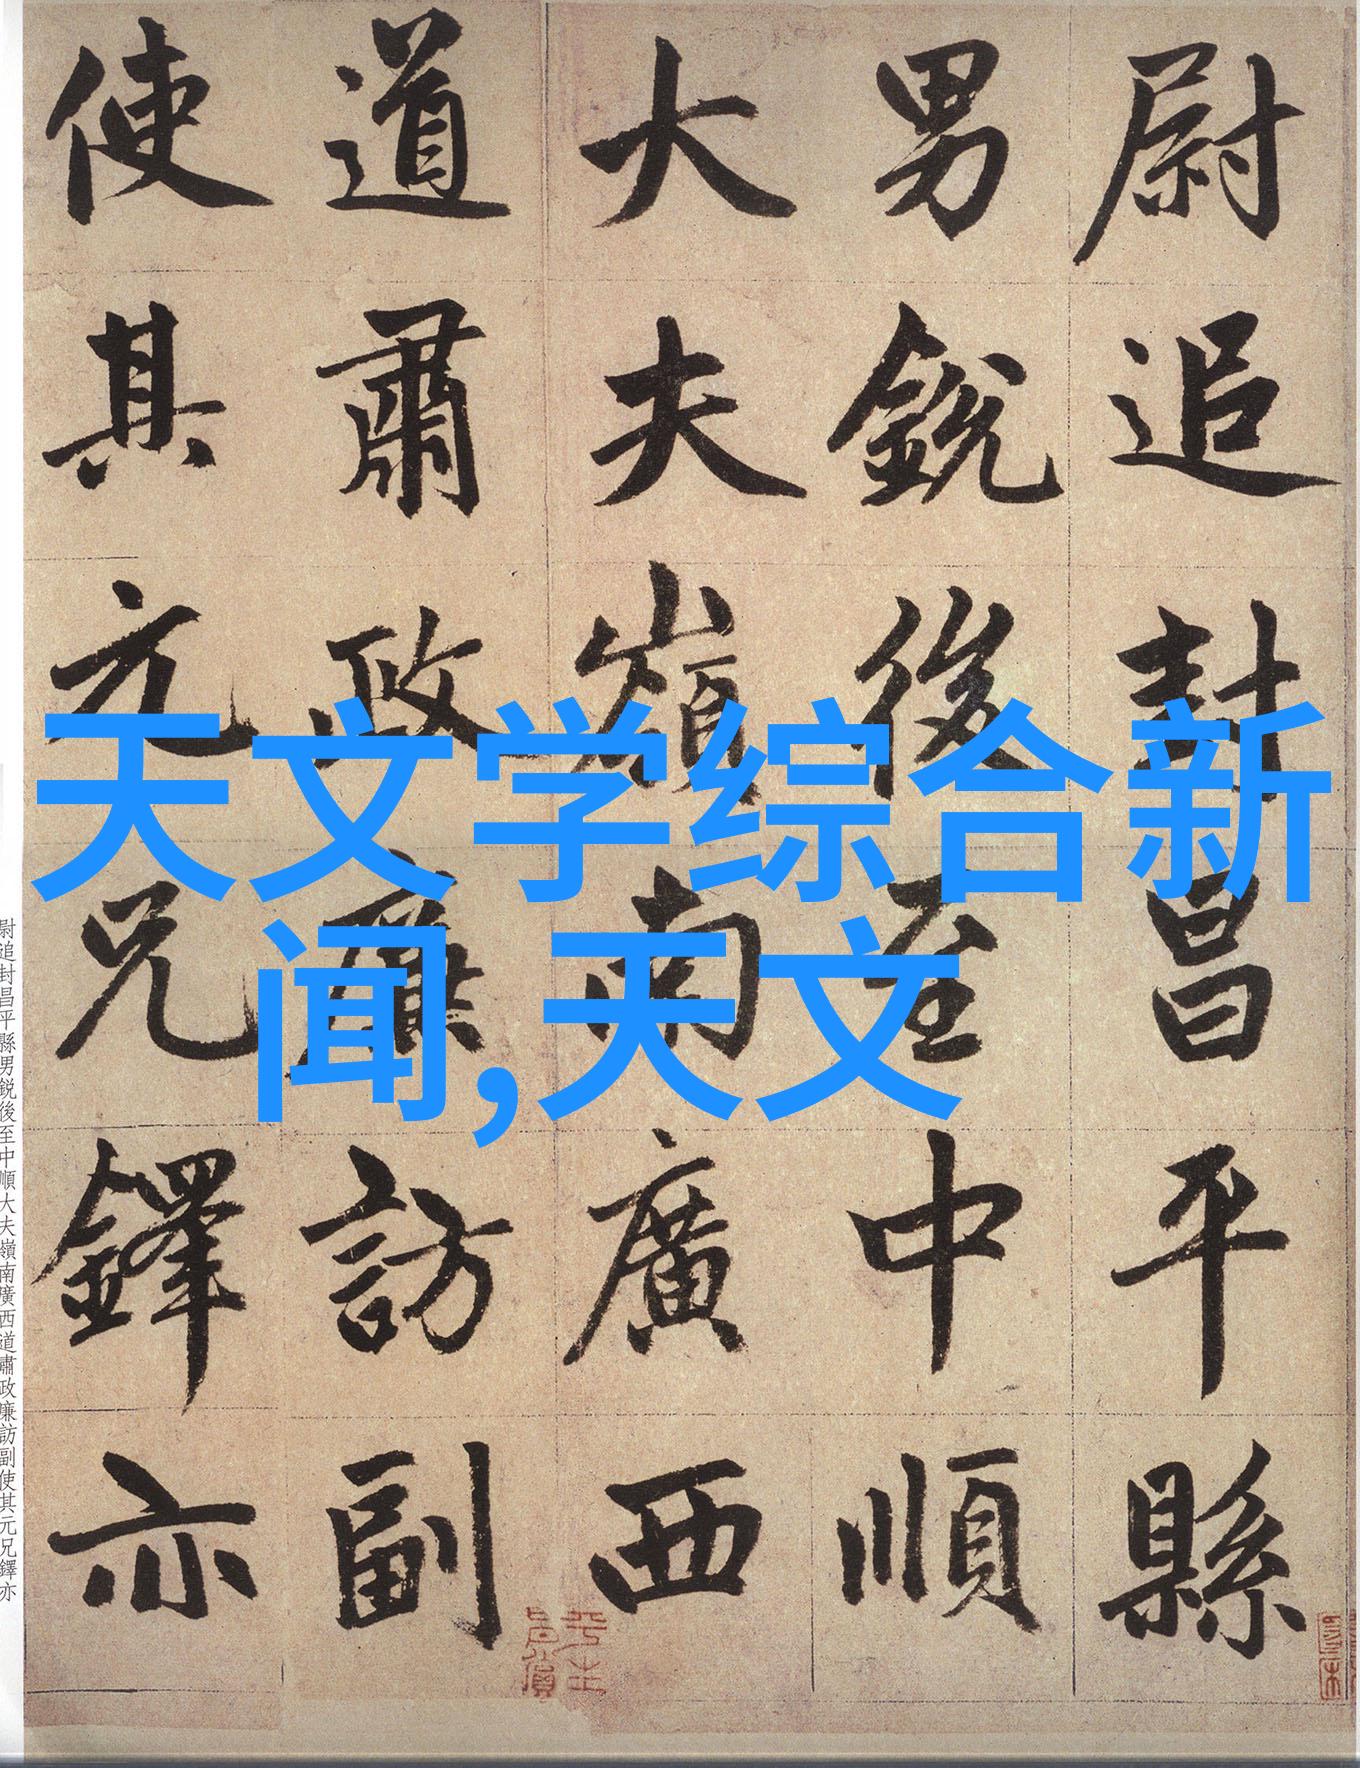 尉追封昌平縣
男銳後至中順
大夫嶺南廣西
道肅政廉訪副
使其元兄鐸亦
天文学综合新
闻,天文
尉追封昌平縣男銳後至中順大夫嶺南廣西道肅政廉訪副使其元兄鐸亦